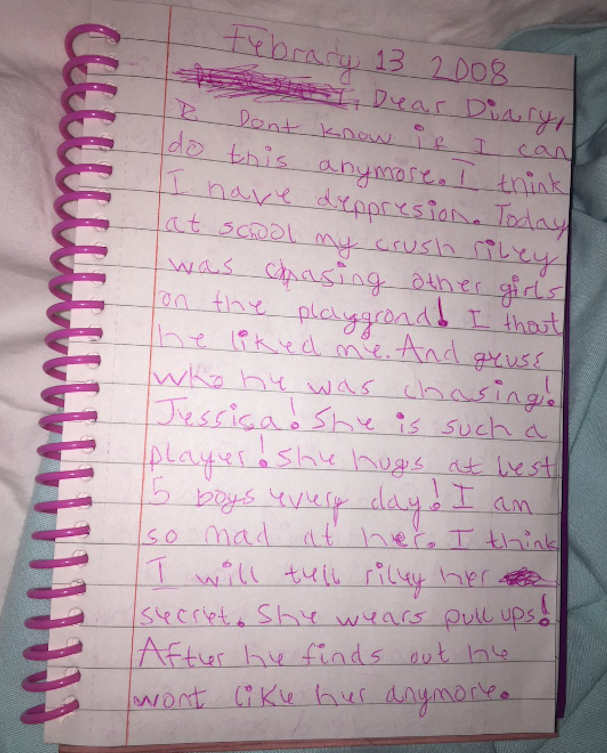 Febrary 13 2008
Dear Diary,
I Dont know if I can
do this anymore. I think
I have deppresion. Today
at scool my crush riley
was chasing other girls
on the playgrond! I thout
he liked me. And geuse
who he was chasing!
Jessica! She is such a
player! She hugs at lest
5 boys every day! I am
so mad at her. I think
I will tell riley her
secret. She wears pull ups!
After he finds out he
wont like her anymore.